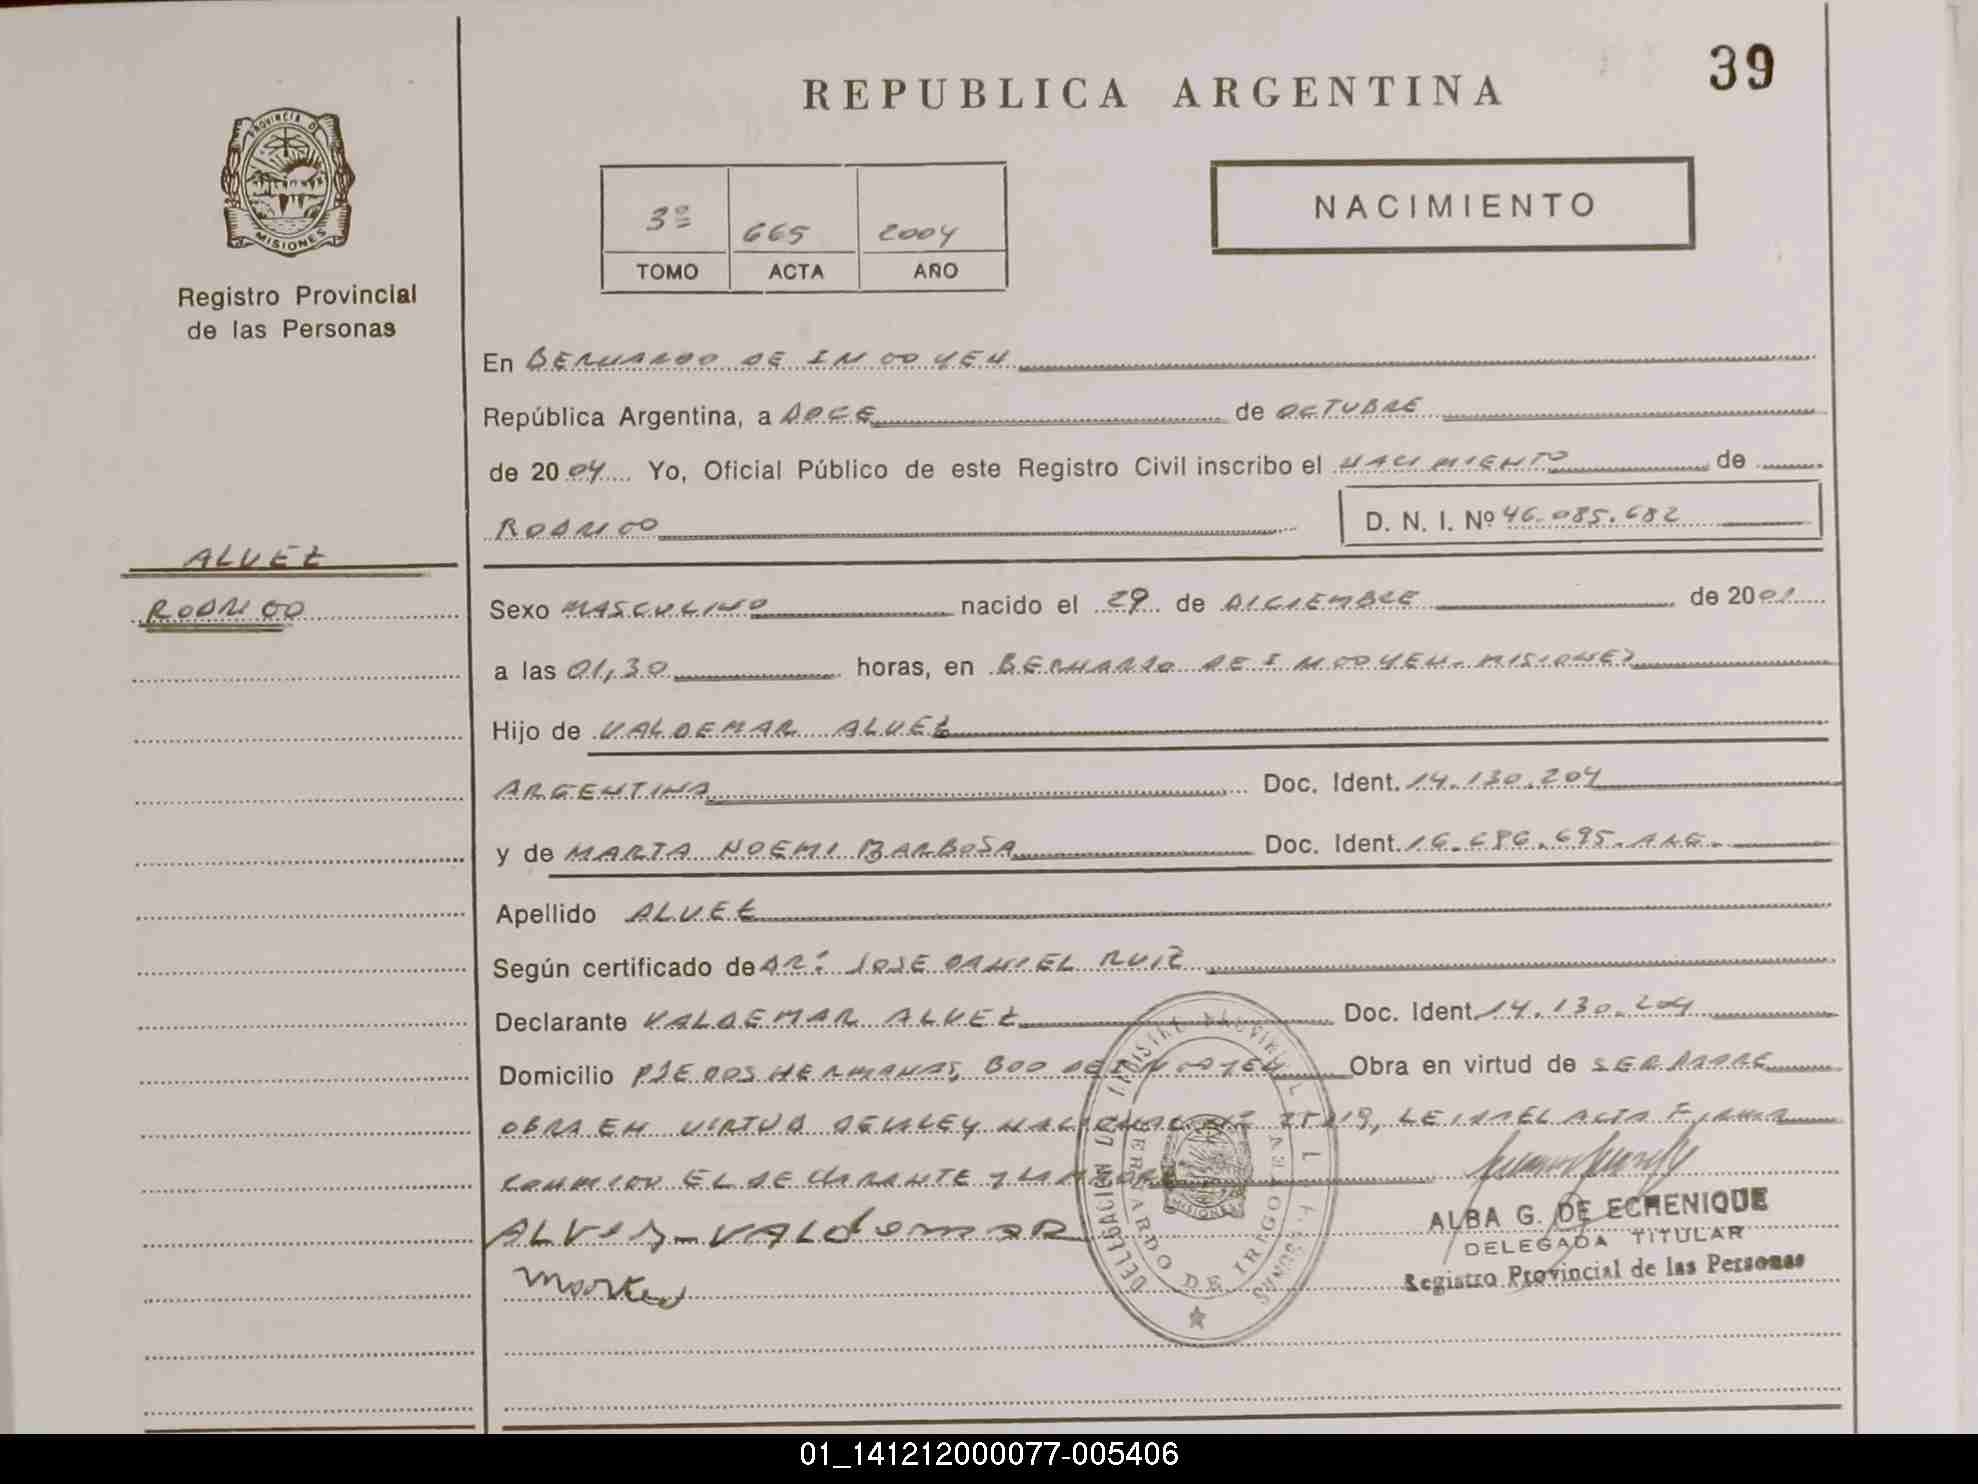 39
REPUBLICA ARGENTINA
PROVINCIA DE
MISIONES
Registro Provincial
de las Personas
NACIMIENTO
3º 665 2004
TOMO ACTA AÑO
En BERNARDO DE IRIGOYEN
República Argentina, a DOCE de OCTUBRE
de 2004 Yo, Oficial Público de este Registro Civil inscribo el NACIMIENTO de
RODRIGO D. N. I. Nº 46.085.682
ALVEZ
RODRIGO
Sexo MASCULINO nacido el 29 de DICIEMBRE de 2001
a las 01,30 horas, en BERNARDO DE IRIGOYEN. MISIONES
Hijo de VALDEMAR ALVEZ
ARGENTINA Doc. Ident. 14.130.204
y de MARTA NOEMI BARBOSA Doc. Ident. 16.686.695. ARG.
Apellido ALVEZ
Según certificado de DR. JOSE DANIEL RUIZ
Declarante VALDEMAR ALVEZ Doc. Ident. 14.130.204
Domicilio PJE DOS HERMANAS, BDO DE IRIGOYEN Obra en virtud de
OBRA EN VIRTUD DE LA LEY NACIONAL Nº LEIDA EL ACTA FIRMAN
CONMIGO EL DECLARANTE Y LA MADRE
ALVEZ-VALdemar
ALBA G. DE ECHENIQUE
DELEGADA TITULAR
Registro Provincial de las Personas
DELEGACION
BERNARDO DE IRIGOYEN
MISIONES
01_141212000077-005406